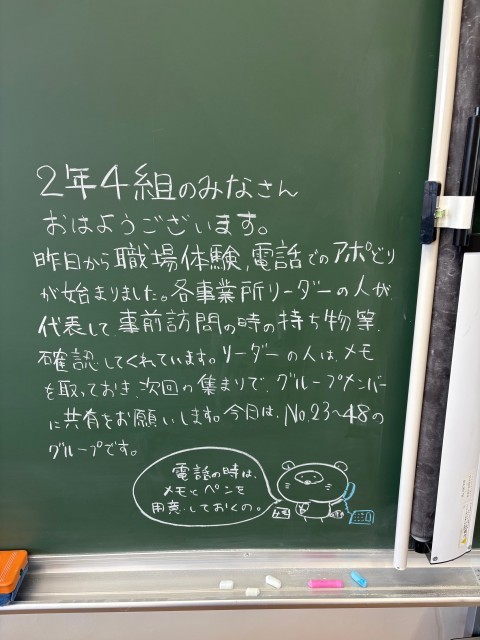 2年4組のみなさん
おはようございます。
昨日から職場体験,電話でのアポどり
が始まりました。各事業所リーダーの人が、
代表して、事前訪問の時の持ち物等、
確認してくれています。リーダーの人は、メモ
を取っておき、次回の集まりで、グループメンバー
に共有をお願いします。今日は、No.23〜48の
グループです。
電話の時は、
メモとペンを
用意しておくの。
メモ